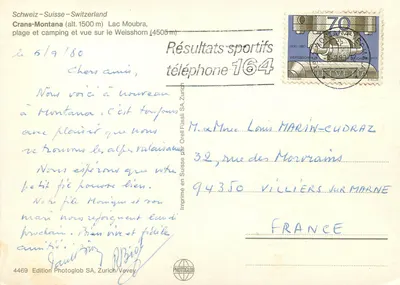 Schweiz - Suisse - Switzerland
Crans-Montana (alt. 1500 m) Lac Moubra,
plage et camping et vue sur le Weisshorn (4505m)
Résultats sportifs
téléphone 164
70
HELVETIA
le 6/9/80
Chers amis,
Nous voici à nouveau
à Montana. C'est toujours
avec plaisir que nous
retrouvons les alpes valaisannes
Nous espérons que votre
petit fils pousse bien.
Notre fille Monique et son
mari nous rejoignent lundi
prochain. Bien vive et fidèle
amitié.
M. et Mme Louis MARIN-CUDRAZ
32, rue des Morvrains
94350 VILLIERS SUR MARNE
FRANCE
Imprimé en Suisse par Orell Füssli SA, Zurich
4469 Edition Photoglob SA, Zürich/Vevey
PHOTOGLOB